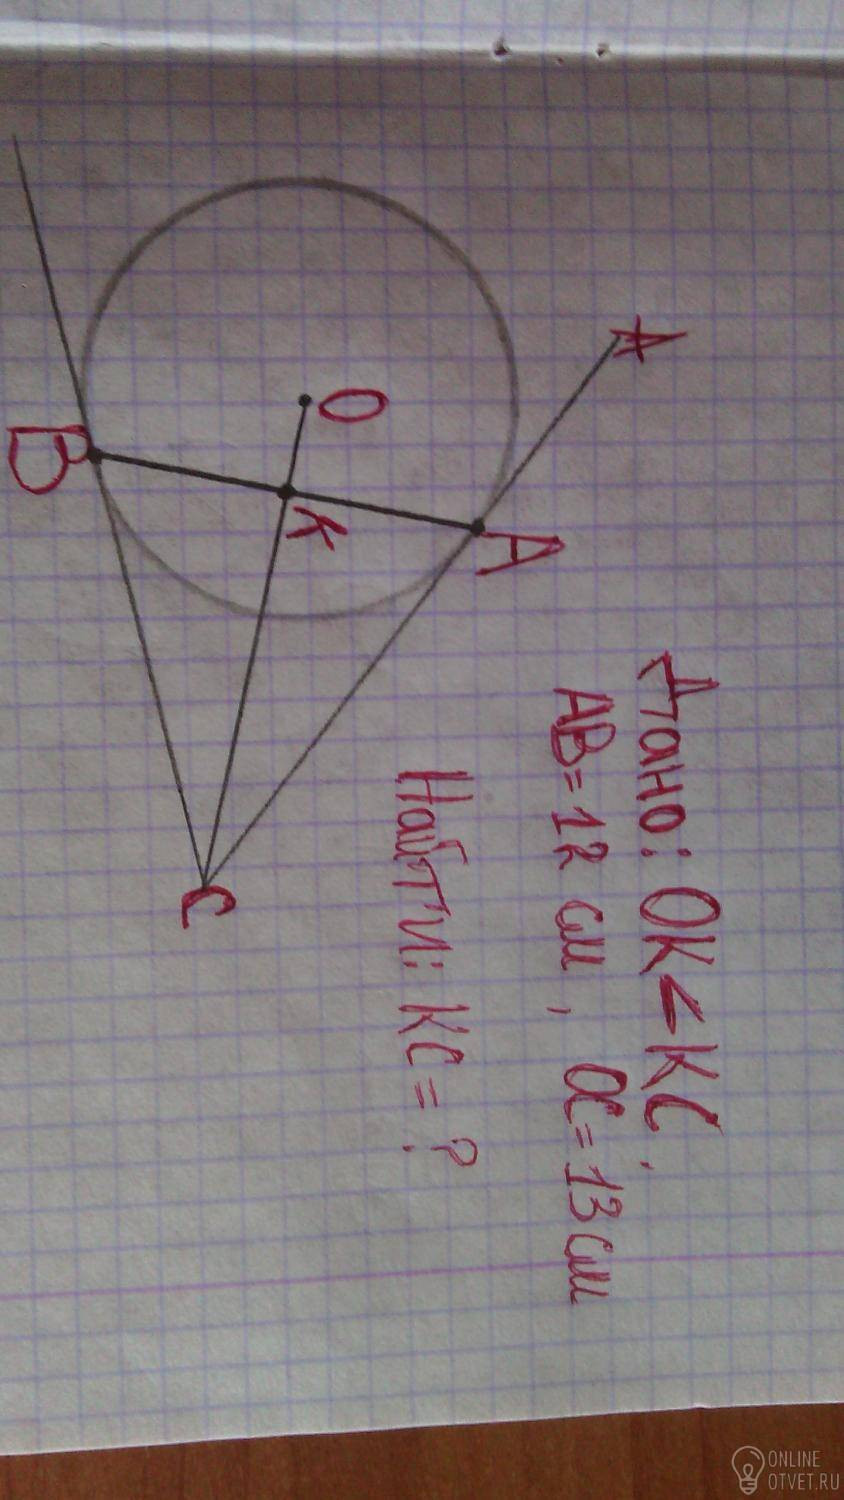 Дано: OK < KC,
AB = 12 см, OC = 13 см
Найти: KC = ?
A
A
O
K
B
C
ONLINE
OTVET.RU